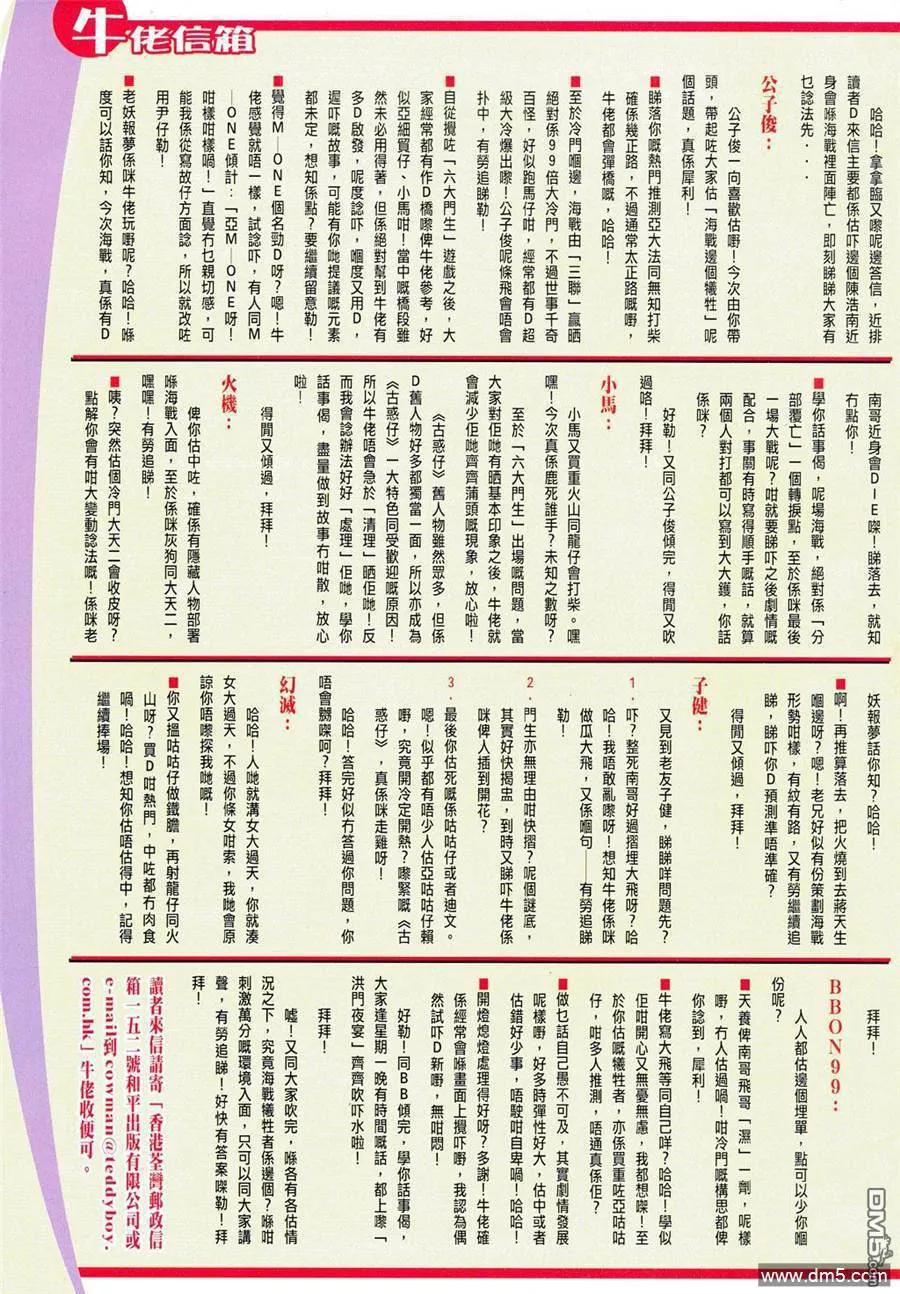 牛佬信箱
哈哈!拿拿臨又嚟呢邊答信,近排
讀者D來信主要都係估吓邊個陳浩南近
身會喺海戰裡面陣亡,即刻睇睇大家有
乜諗法先...
公子俊:
公子俊一向喜歡估嘢!今次由你帶
頭,帶起咗大家估「海戰邊個犧牲」呢
個話題,真係犀利!
■睇落你嘅熱門推測亞大法同無知打柴
確係幾正路,不過通常太正路嘅嘢,
牛佬都會彈橋嘅,哈哈!
■至於冷門嗰邊,海戰由「三聯」贏晒
絕對係99倍大冷門,不過世事千奇
百怪,好似跑馬仔咁,經常都有D超
級大冷爆出嚟!公子俊呢條飛會唔會
扑中,有勞追睇勒!
■自從攪咗「六大門生」遊戲之後,大
家經常都有作D橋嚟俾牛佬參考,好
似亞細賀仔、小馬咁!當中嘅橋段雖
然未必用得著,但係絕對幫到牛佬有
多D啟發,呢度諗吓,嗰度又用D,
遲吓嘅故事,可能有你哋提議嘅元素
都未定,想知係點?要繼續留意勒!
■覺得M—ONE個名勁D呀?嗯!牛
佬感覺就唔一樣,試諗吓,有人同M
—ONE傾計:「亞M—ONE呀!
咁樣咁樣喎!」直覺冇乜親切感,可
能我係從寫故仔方面諗,所以就改咗
用尹仔勒!
■老妖報夢係咪牛佬玩嘢呢?哈哈!喺
度可以話你知,今次海戰,真係有D
南哥近身會DIE㗎!睇落去,就知
冇點你!
■學你話事偈,呢場海戰,絕對係「分
部覆亡」一個轉捩點,至於係咪最後
一場大戰呢?咁就要睇吓之後劇情嘅
配合,事關有時寫得順手嘅話,就算
兩個人對打都可以寫到大大鑊,你話
係咪?
好勒!又同公子俊傾完,得閒又吹
過咯!拜拜!
小馬:
小馬又買重火山同龍仔會打柴。嘿
嘿!今次真係鹿死誰手?未知之數呀?
至於「六大門生」出場嘅問題,當
大家對佢哋有晒基本印象之後,牛佬就
會減少佢哋齊齊蒲頭嘅現象,放心啦!
《古惑仔》舊人物雖然眾多,但係
D舊人物好多都獨當一面,所以亦成為
《古惑仔》一大特色同受歡迎嘅原因!
所以牛佬唔會急於「清理」晒佢哋!反
而我會諗辦法好好「處理」佢哋,學你
話事偈,盡量做到故事冇咁散,放心
啦!
得閒又傾過,拜拜!
火機:
俾你估中咗,確係有隱藏人物部署
喺海戰入面,至於係咪灰狗同大天二,
嘿嘿!有勞追睇!
■咦?突然估個冷門大天二會收皮呀?
點解你會有咁大變動諗法嘅!係咪老
妖報夢話你知?哈哈!
■啊!再推算落去,把火燒到去蔣天生
嗰邊呀?嗯!老兄好似有份策劃海戰
形勢咁樣,有紋有路,又有勞繼續追
睇,睇吓你D預測準唔準確?
得閒又傾過,拜拜!
子健:
又見到老友子健,睇睇咩問題先?
1.吓?整死南哥好過摺埋大飛呀?哈
哈!我唔敢亂嚟呀!想知牛佬係咪
做瓜大飛,又係嗰句——有勞追睇
勒!
2.門生亦無理由咁快摺?呢個謎底,
其實好快揭盅,到時又睇吓牛佬係
咪俾人插到開花?
3.最後你估死嘅係咕咕仔或者迪文。
嗯!似乎都有唔少人估亞咕咕仔賴
嘢,究竟開冷定開熱?嚟緊嘅《古
惑仔》,真係咪走雞呀!
哈哈!答完好似冇答過你問題,你
唔會嬲㗎呵?拜拜!
幻滅:
哈哈!人哋就溝女大過天,你就湊
女大過天,不過你條女咁索,我哋會原
諒你唔嚟探我哋嘅!
■你又搵咕咕仔做鐵膽,再射龍仔同火
山呀?買D咁熱門,中咗都冇肉食
喎!哈哈!想知你估唔估得中,記得
繼續捧場!
拜拜!
BBON99:
人人都估邊個埋單,點可以少你嗰
份呢?
■天養俾南哥飛哥「濕」一劑,呢樣
嘢,冇人估過喎!咁冷門嘅構思都俾
你諗到,犀利!
■牛佬寫大飛等同自己咩?哈哈!學似
佢咁開心又無憂無慮,我都想㗎!至
於你估嘅犧牲者,亦係買重咗亞咕咕
仔,咁多人推測,唔通真係佢?
■做乜話自己愚不可及,其實劇情發展
呢樣嘢,好多時彈性好大,估中或者
估錯好少事,唔駛咁自卑喎!哈哈!
■開燈熄燈處理得好呀?多謝!牛佬確
係經常會喺畫面上攪吓嘢,我認為偶
然試吓D新嘢,無咁悶!
好勒!同BB傾完,學你話事偈,
大家逢星期一晚有時間嘅話,都上嚟「
洪門夜宴」齊齊吹吓水啦!
拜拜!
噓!又同大家吹完,喺各有各估情
況之下,究竟海戰犧牲者係邊個?喺咁
刺激萬分嘅環境入面,只可以同大家講
聲,有勞追睇!好快有答案㗎勒!拜
拜!
讀者來信請寄「香港荃灣郵政信
箱一五二號和平出版有限公司或
e-mail到cowman@teddyboy.
com.hk」牛佬收便可。
DM5.com
www.dm5.com